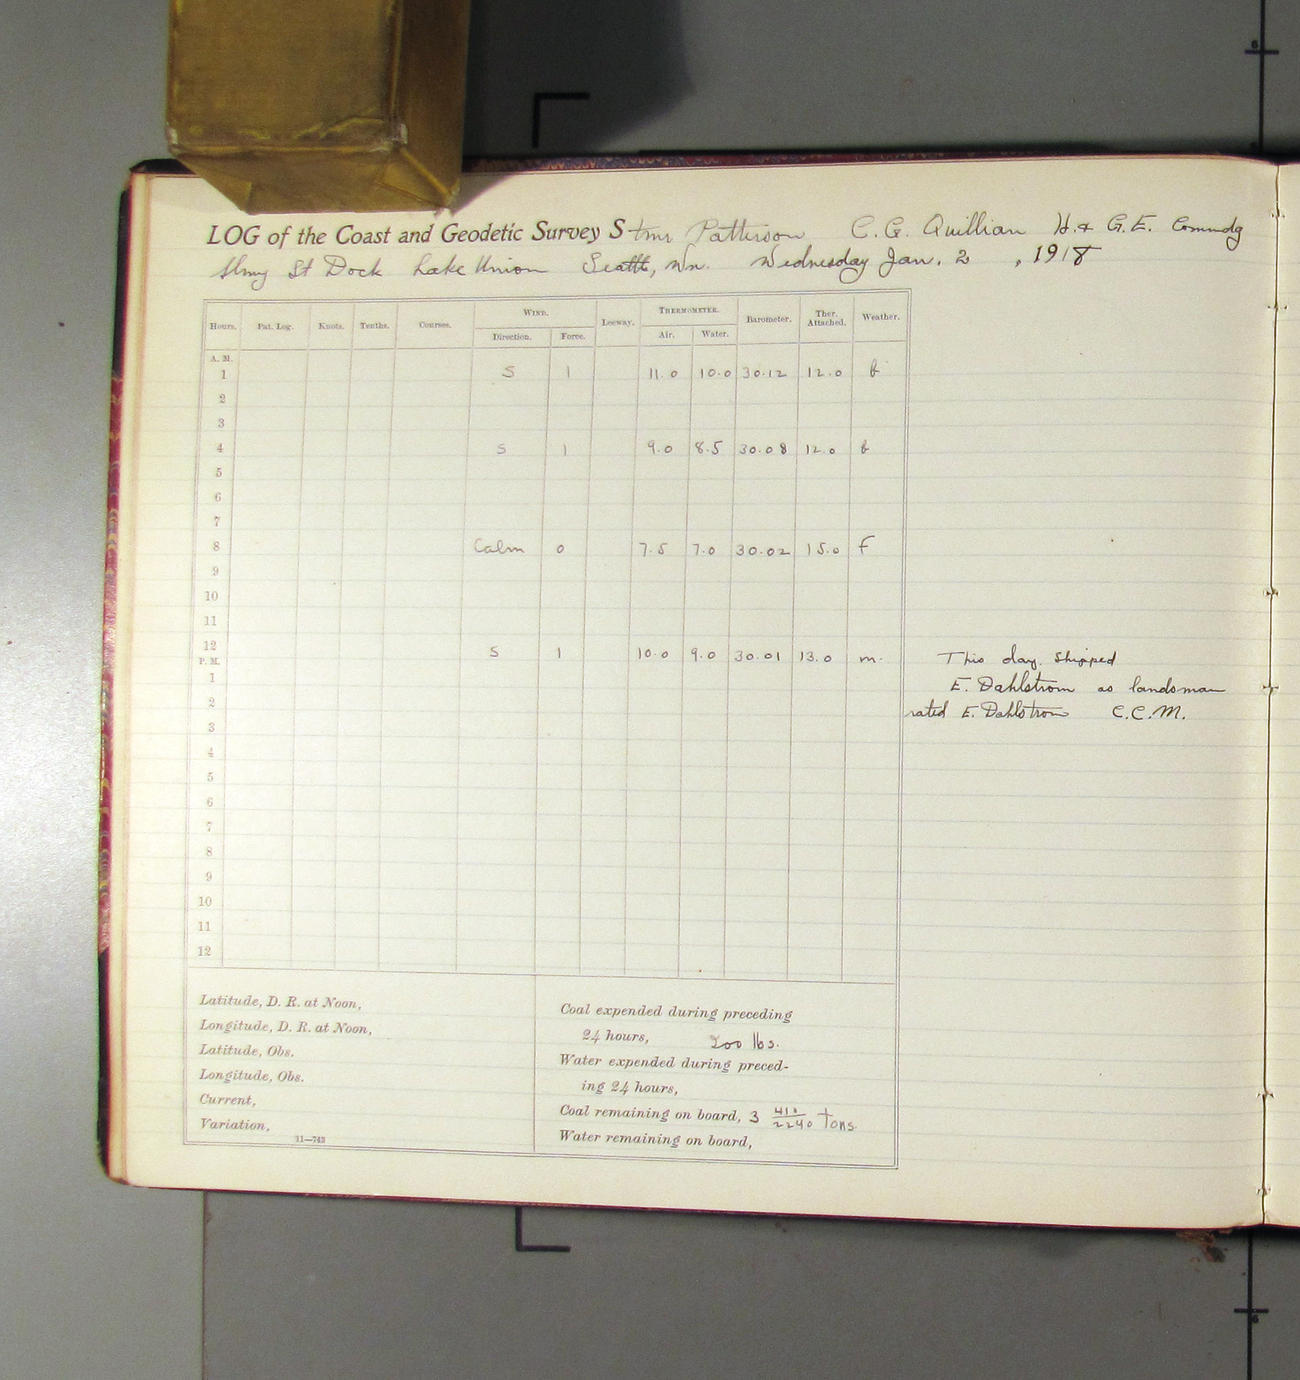 LOG of the Coast and Geodetic Survey Stmr Patterson C. G. Quillian H. & G. E. Commdg
St Dock Lake Union Seattle, Wn. Wednesday Jan. 2, 1918
Hours. Pat. Log. Knots. Tenths. Courses. WIND. Direction. Force. Leeway. THERMOMETER. Air. Water. Barometer. Ther. Attached. Weather.
A. M.
1 S 1 11.0 10.0 30.12 12.0 b
2
3
4 S 1 9.0 8.5 30.08 12.0 b
5
6
7
8 Calm 0 7.5 7.0 30.02 15.0 f
9
10
11
12 S 1 10.0 9.0 30.01 13.0 m.
P. M.
1
2
3
4
5
6
7
8
9
10
11
12
This day shipped
E. Dahlstrom as landsman
rated E. Dahlstrom C.C.M.
Latitude, D. R. at Noon,
Longitude, D. R. at Noon,
Latitude, Obs.
Longitude, Obs.
Current,
Variation,
11—743
Coal expended during preceding
24 hours, 200 lbs.
Water expended during preced-
ing 24 hours,
Coal remaining on board, 3 410/2240 tons
Water remaining on board,
6
6